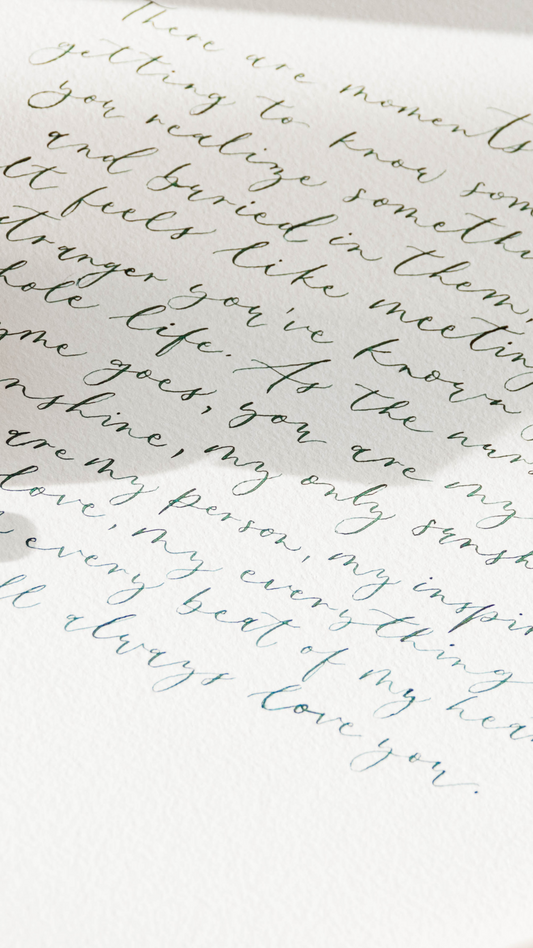 There are moments
getting to know som
you realize somethi
and buried in them,
lt feels like meeting
stranger you've known
hole life. As the nurs
yme goes, you are my
nshine, my only sunsh
are my person, my inspir
love, my everything
every beat of my hea
ll always love you.